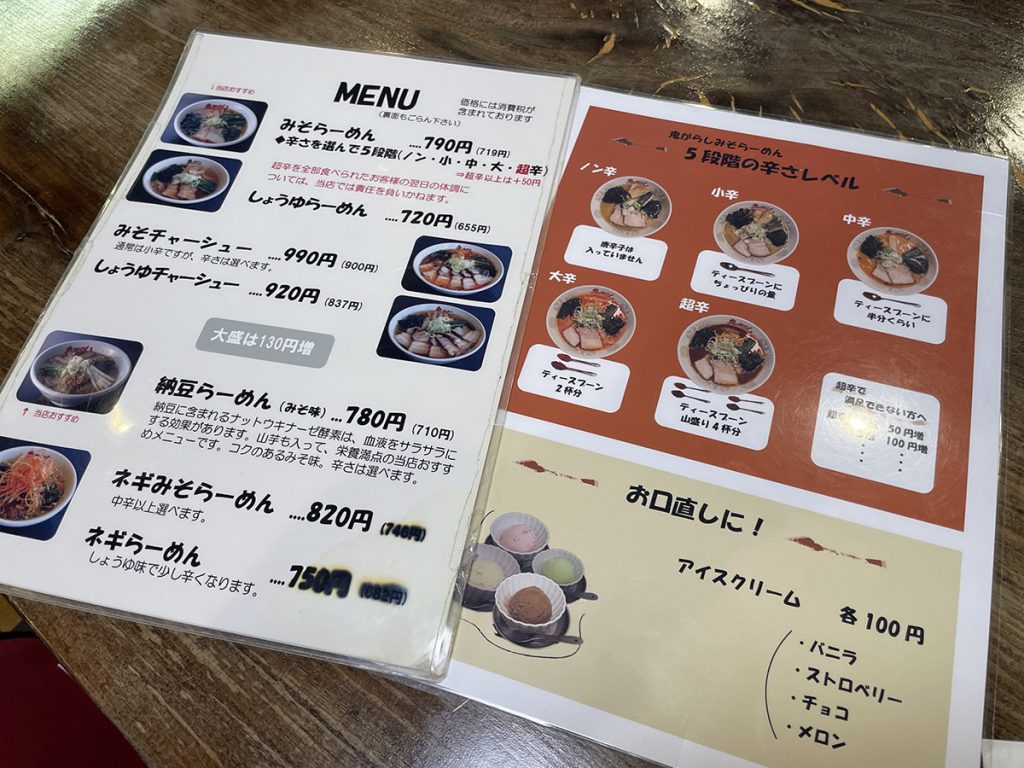 ↓当店おすすめ
MENU
(裏面もごらん下さい)
価格には消費税が
含まれております
みそらーめん ....790円(719円)
◆辛さを選んで5段階(ノン・小・中・大・超辛)
⇒超辛以上は+50円
超辛を全部食べられたお客様の翌日の体調に
ついては、当店では責任を負いかねます。
しょうゆらーめん ....720円(655円)
みそチャーシュー ....990円(900円)
通常は小辛ですが、辛さは選べます。
しょうゆチャーシュー ....920円(837円)
大盛は130円増
↑当店おすすめ
納豆らーめん(みそ味)...780円(710円)
納豆に含まれるナットウキナーゼ酵素は、血液をサラサラに
する効果があります。山芋も入って、栄養満点の当店おすす
めメニューです。コクのあるみそ味。辛さは選べます。
ネギみそらーめん ....820円(746円)
中辛以上選べます。
ネギらーめん ....750円(682円)
しょうゆ味で少し辛くなります。
鬼がらしみそらーめん
5段階の辛さレベル
ノン辛
唐辛子は
入っていません
小辛
ティースプーンに
ちょっぴりの量
中辛
ティースプーンに
半分くらい
大辛
ティースプーン
2杯分
超辛
ティースプーン
山盛り4杯分
超辛で
満足できない方へ
50円増
100円増
お口直しに!
アイスクリーム
各100円
・バニラ
・ストロベリー
・チョコ
・メロン